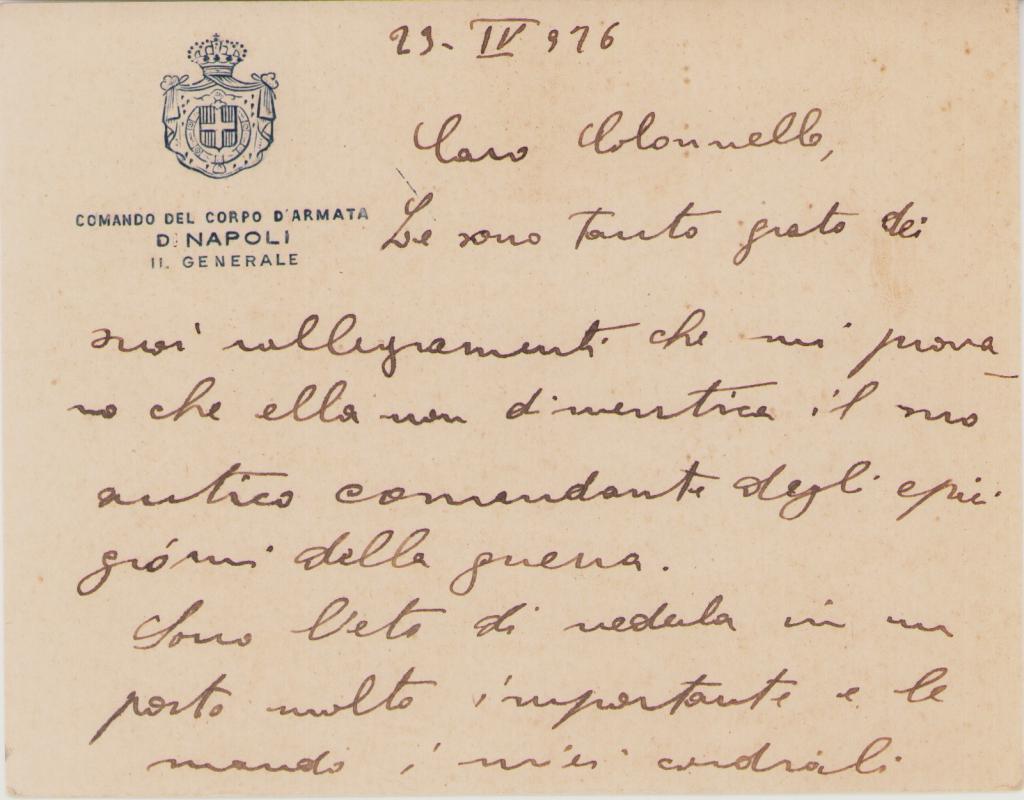 23-IV 926
COMANDO DEL CORPO D'ARMATA
DI NAPOLI
IL GENERALE
Caro Colonnello,
Le sono tanto grato dei
suoi rallegramenti che mi prova_
no che ella non dimentica il suo
antico comandante degli epici
giorni della guerra.
Sono lieto di vederla in un
posto molto importante e le
mando i miei cordiali